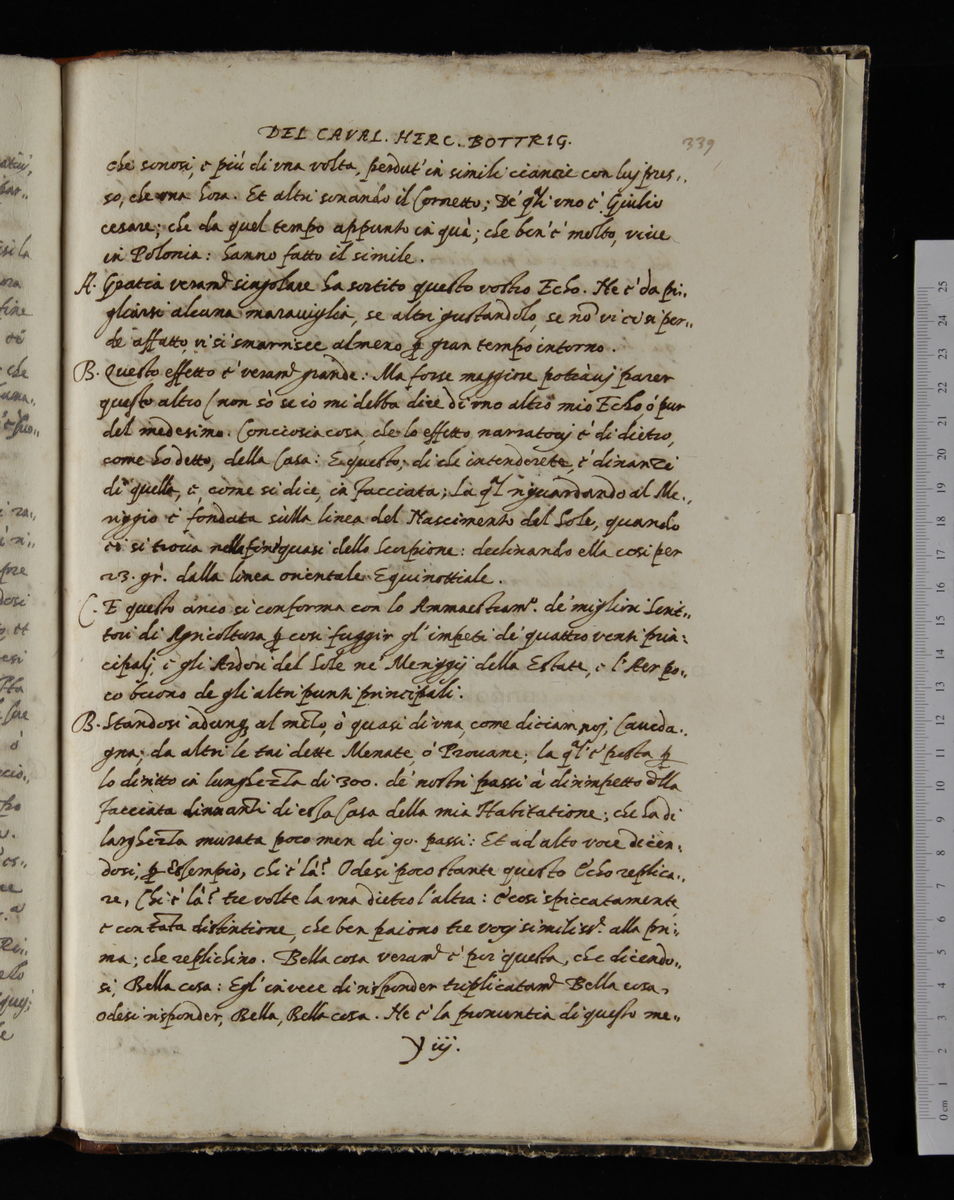 DEL CAVAL. HERC. BOTTRIG.
339
che sonosi, e più di vna volta, perdut' in simili ciancie con luj pres„
so, che vna hora. Et altri sonando il Cornetto; De' qľi vno è Giulio
cesare; che da quel tempo appunto in quà; che ben' è molto, viue
in Polonia: hanno fatto il simile.
A. Gratia veramͭ singolare ha sortito questo vostro Echo. Ne è da pi„
gliarsi alcuna marauiglia, se altri gustandolo, se nõ vi ci si per„
de affatto, vi si smarrisce almeno ꝑ gran tempo intorno.
B. Questo effetto è veramͭ grande: Ma forse maggiore potràuj parer
questo altro (non sò se io mi debba dire di vno altro mio Echo, ò pur
del medesimo. Conciosia cosa, che lo effetto narratouj è di dietro,
come ho detto, della Casa: E questo, di che intenderete, è dinanzi
di quella, e, come si dice, in facciata; la qľ riguardando al Me„
riggio è fondata sulla linea del Nascimento del Sole, quando
ei si troua nella fine quasi dello Scorpione: declinando ella cosi per
23. gr. dalla linea orientale Equinottiale.
C. E questo anco si conforma con lo Ammaestramᵗᵒ. de' migliori Scrit„
tori di Agricoltura ꝑ cosi fuggir gl' impeti de' quattro venti prin„
cipalj, e gli Ardori del Sole ne' Meriggij della Estate, e l'Aer po„
co buono de gli altri punti principali.
B. Standosi adunq₃ al mẽzo, ò quasi di vna, come diciam noj, Caueda„
gna; da altri le tai dette Menate, ò Prouane; la qľ è posta ꝑ
lo diritto in lunghezza di 300. de' nostri passi à dirimpetto dlla
facciata dinnanti di essa Casa della mia Habitatione; che ha di
larghezza murata poco men di 90. passi: Et ad alto voce dicen„
dosi, ꝑ Essempio, chi è là? Odesi poco stante questo Echo replica„
re, Chi è là? tre volte la vna dietro l'altra: è cosi spiccatamente,
e con tãta distintione, che ben paiono tre vocj similissͤ. alla pri„
ma; che replichino. Bella cosa veramͭ è pur questa, che dicendo„
si, Bella cosa: Egl' in vece di risponder triplicatamͭ Bella cosa,
odesi risponder, Bella, Bella cosa. Ne è la pronuntia di questo me„
Y iij.